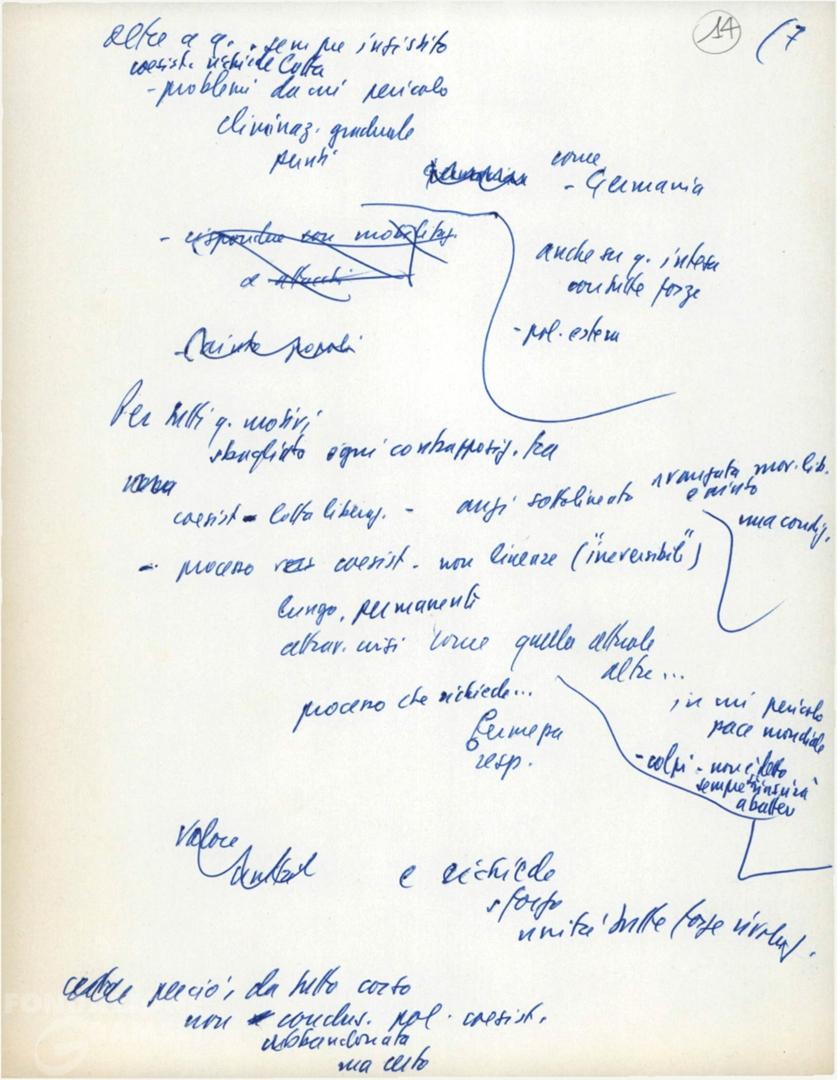 14 (7
oltre a q. . sempre insistito
coesist. richiede lotta
- problemi da cui pericolo
eliminaz. graduale
punti
come
- Germania
- rispondere con mobilitaz.
a attacchi
anche su q. intesa
con tutte forze
- pol. estera
- popoli
Per tutti q. motivi
sbagliato ogni contrapposiz. tra
coesist - lotta liberaz. - anzi sottolineato avanzata mov. lib.
una condiz.
- processo coesist. non lineare ("irreversibili")
lungo, permanenti
attrav. crisi come quella attuale
altre...
processo che richiede...
fermezza
resp.
in cui pericolo
pace mondiale
- colpi - non è detto
sempre riuscirà
a batter
valore
e richiede
sforzo
unità tutte forze rivoluz.
perciò, da tutto corso
non conclus. pol. coesist.
abbandonata
ma certo